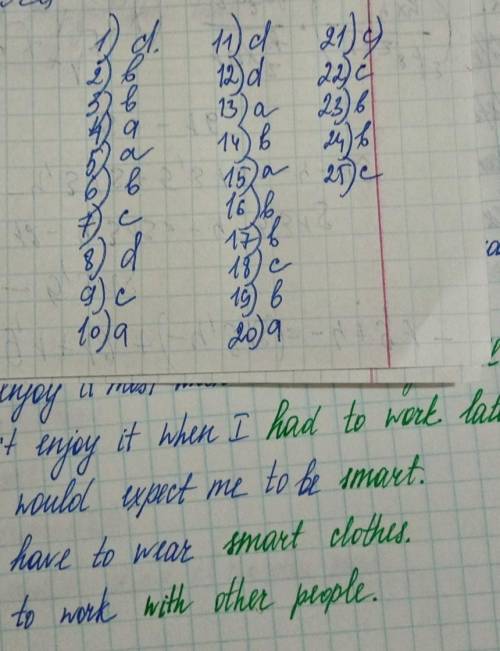 1) d.
2) b
3) b
4) a
5) a
6) b
7) c
8) d
9) c
10) a
11) d
12) d
13) a
14) b
15) a
16) b
17) b
18) c
19) b
20) a
21) c)
22) c
23) b
24) b
25) c
enjoy it most when
't enjoy it when I had to work late
would expect me to be smart.
have to wear smart clothes.
to work with other people.